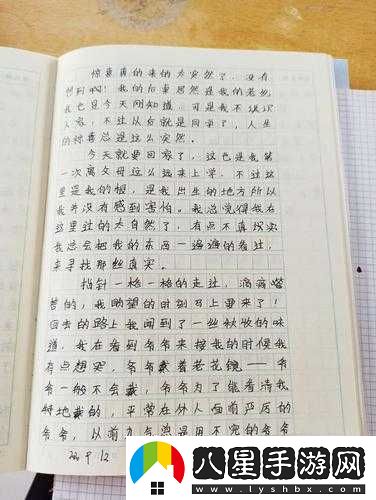 惊喜真的来的太突然了，没有
想到啊！我的后桌居然是我的老幺
我也是今天刚知道，可是我不认识
人家，不过从后就是同学了，人生
的惊喜总是这么突然。
今天就要回家了，这也是我第
一次离父母这么远来上学，不过这
里是我的根，是我出生的地方所以
我并没有感到害怕。我总觉得我在
这里过的太自然了，有点不真实
我总会把我的东西一遍遍的看过，
来寻找那丝真实。
指针一格一格的走过，滴滴嗒
嗒的，我盼望的时刻马上要来了！
回去的路上我闻到了一丝秋收的味
道，我在看到爷爷来接我的时候我
有点想哭，爷爷戴着老花镜——爷
爷一般不会戴，爷爷为了能看清我
特地戴的，平常在外人面前严厉的
爷爷，以前力气总是用不完的爷爷
12
八星手游网
www.lyshbjy.com